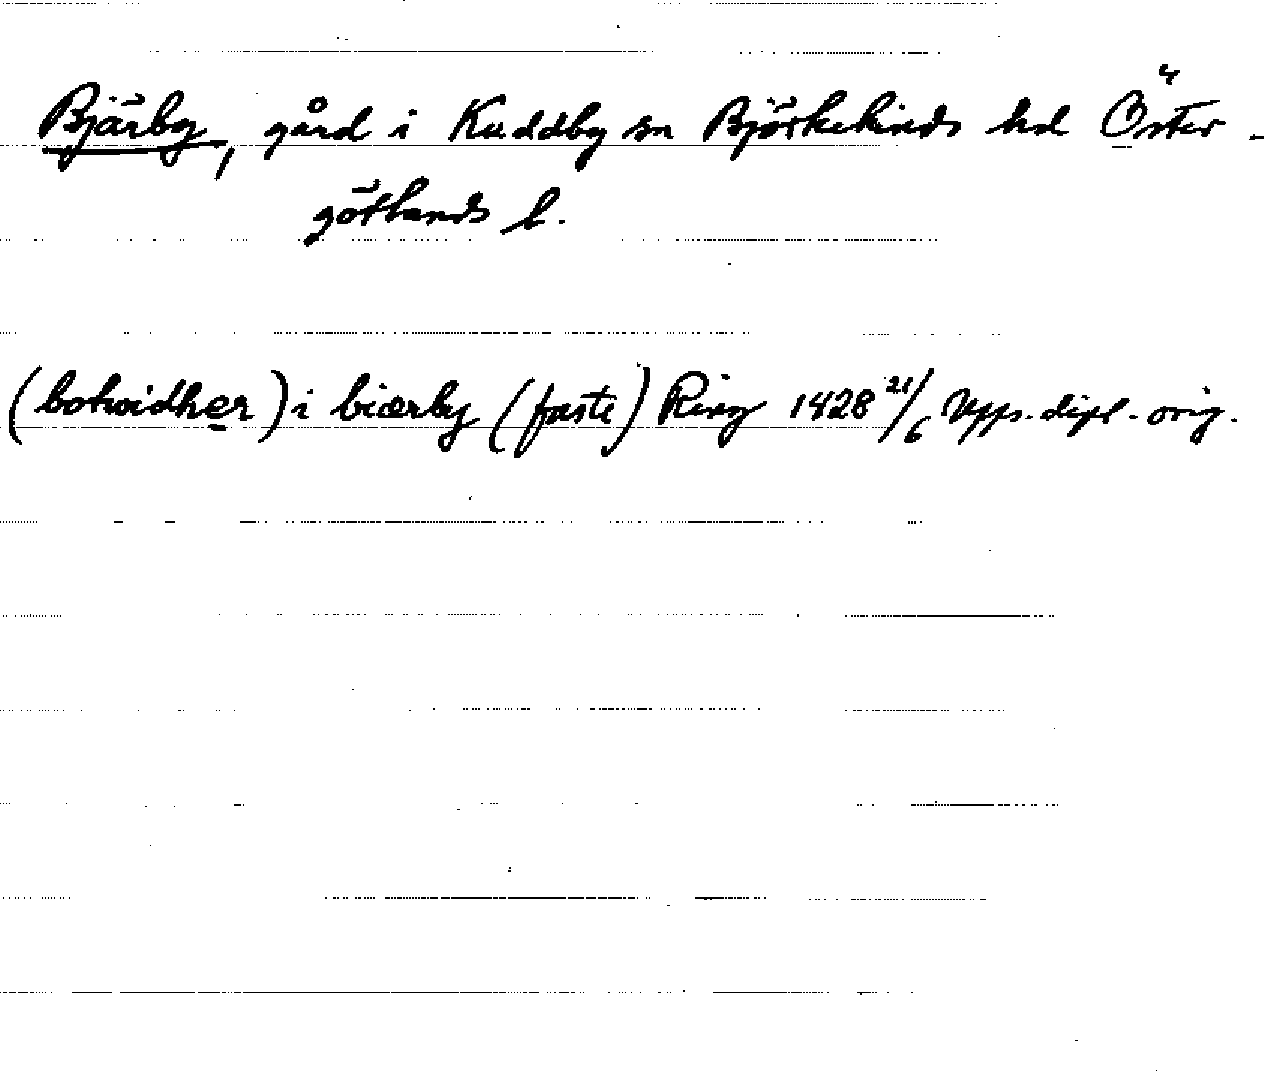 Bjärby, gård i Kuddby sn Björkekinds hd Öster-
götlands l.
(botwidher) i biærby (faste) Ring 1428 21/6 Upps. dipl. orig.